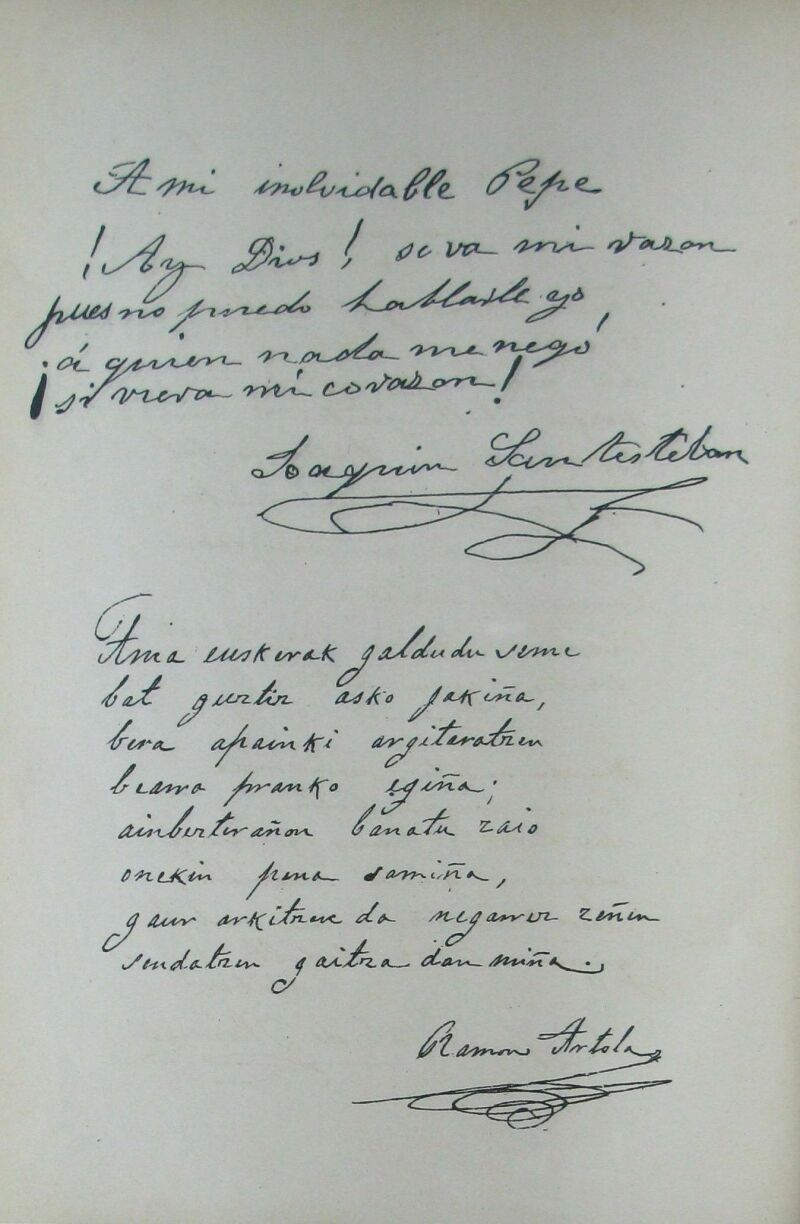 A mi inolvidable Pepe
¡Ay Dios! se va mi razon
pues no puedo hablarle yo
á quien nada me negó
¡si viera mi corazon!
Joaquin Santesteban
Ama euskerak galdu du seme
bat guztiz asko jakiña,
bera apainki argiteratzen
bearra pranko egiña;
ainberterañon banatu zaio
onekin pena samiña,
gaur arkitzen da negarrez zeñen
sendatzen gaitza dan miña.
Ramon Artola